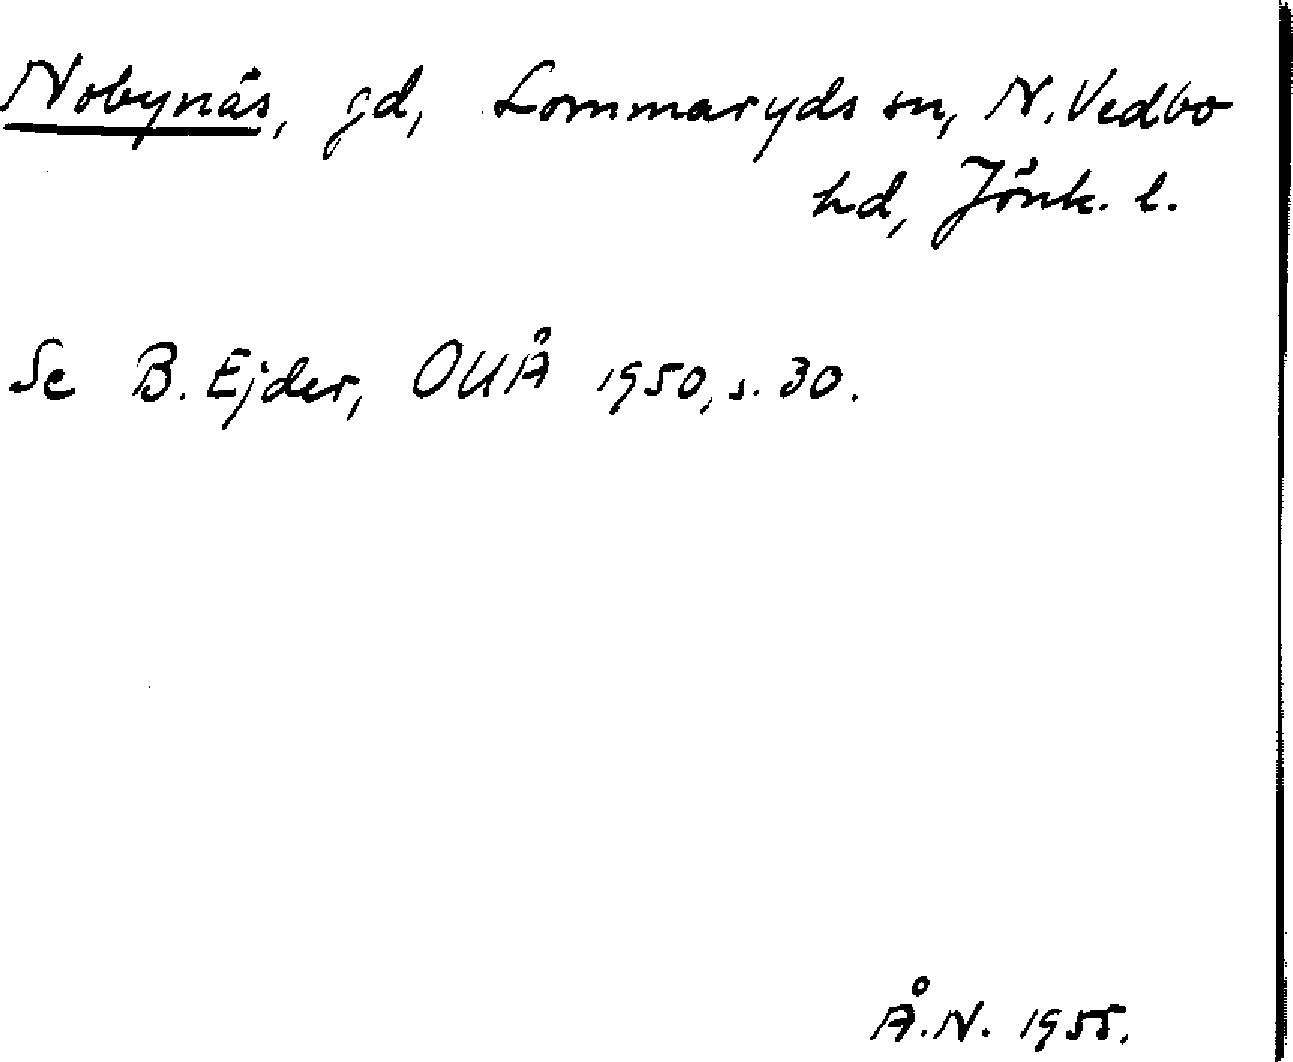 Nobynäs, gd, Lommaryds sn, N. Vedbo
hd, Jönk. l.
Se B. Ejder, OUÅ 1950, s. 30.
Å.N. 1955.